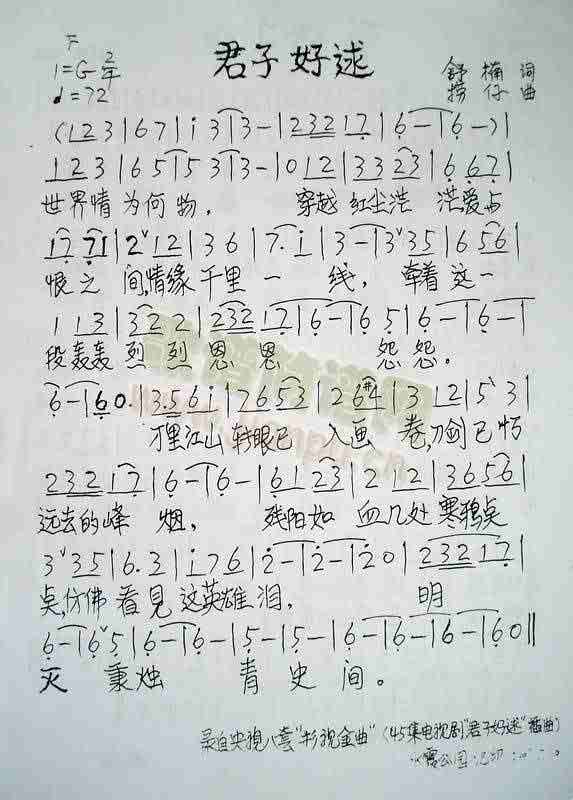 君子好逑
1=G 2/4
♩=72
舒楠 词
捞仔 曲
(1 2 3 | 6 7 | i 3 | 3 - | 2 3 2 1 7 | 6 - | 6 - ) |
1 2 3 | 6 5 | 5 3 | 3 - | 0 1 2 | 3 3 2 3 | 6 6 7 |
世界情为何物, 穿越红尘浩茫爱与
1 7 7 1 | 2 ˅ 1 2 | 3 6 | 7 · i | 3 - | 3 ˅ 3 5 | 6 5 6 |
恨之间,情缘千里一线, 牵着这一
1 1 3 | 3 2 2 | 2 3 2 1 7 | 6 - | 6 5 | 6 - | 6 - |
段轰轰烈烈恩恩怨怨。
6 - | 6 0 · | 3 5 6 i | 7 6 5 3 | 2 6 #4 | 3 1 2 | 5 ˅ 3 |
江山转眼已入画卷,刀剑已朽
2 3 2 1 7 | 6 - | 6 - | 6 1 2 3 | 2 1 2 | 3 6 5 6 |
远去的峰烟, 残阳如血几处寒鸦点
3 ˅ 3 5 | 6 · 3 | i 7 6 | 2 - | 2 - | 2 0 | 2 3 2 1 7 |
点,仿佛看见这英雄泪, 明
6 - | 6 ˅ 5 | 6 - | 6 - | 5 - | 5 - | 6 - | 6 - | 6 - | 6 0 ‖
灭秉烛青史间。
录自央视八套"影视金曲"(45集电视剧"君子好逑"插曲)